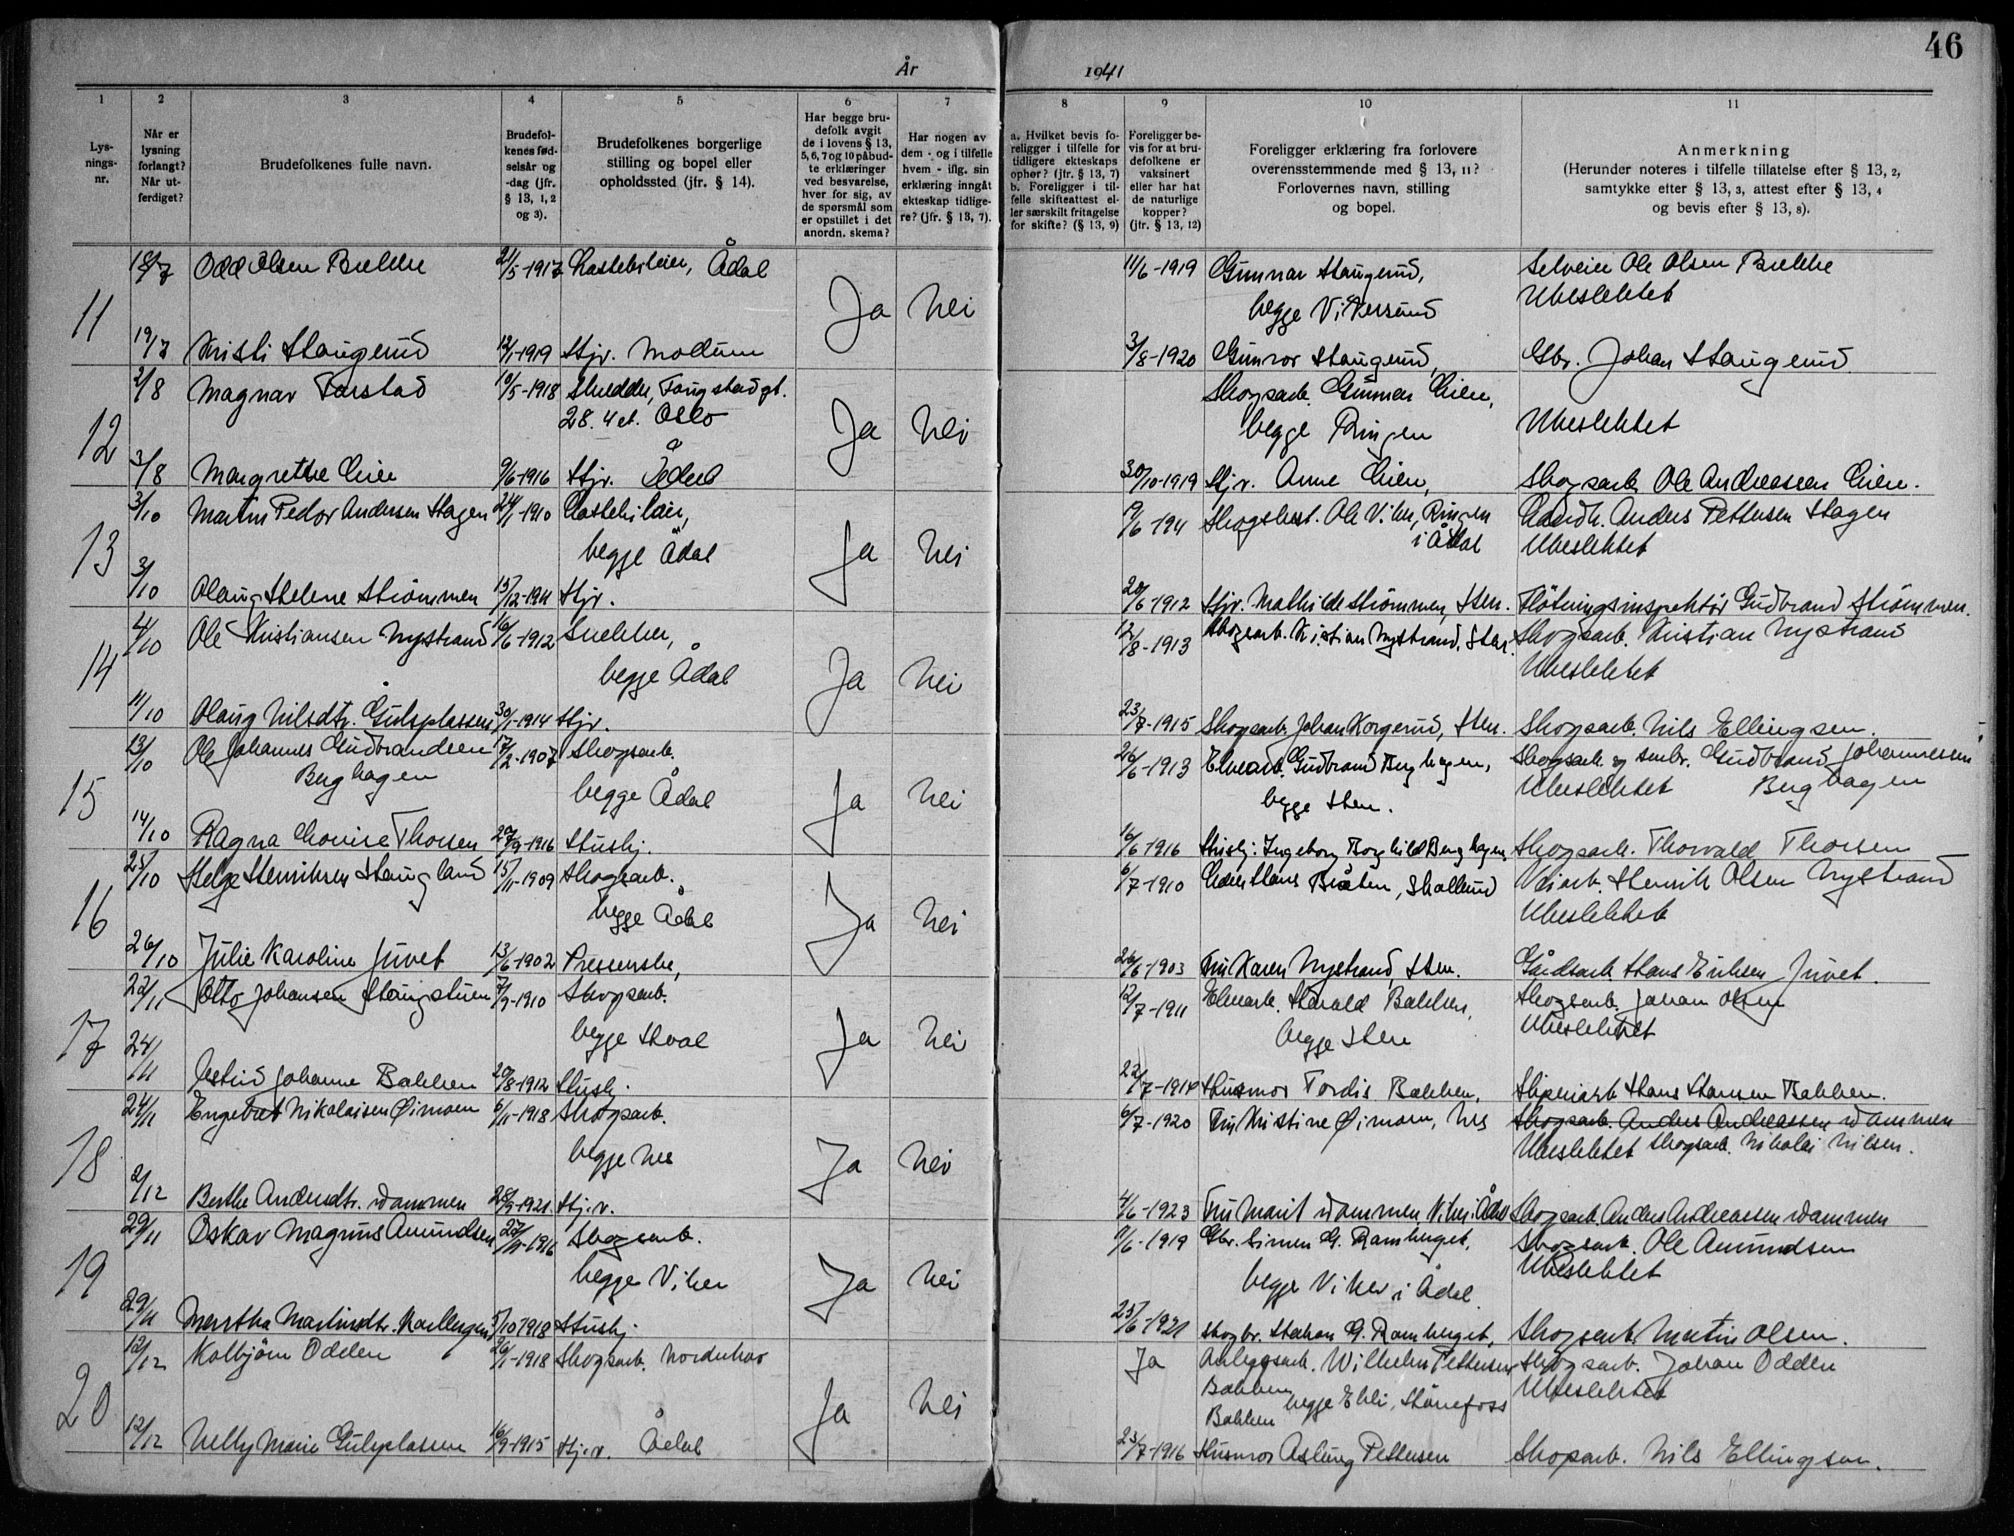 46
År 1941
1 2 3 4 5 6 7 8 9 10 11
Lys-
nings-
nr.
Når er
lysning
forlangt?
Når ut-
ferdiget?
Brudefolkenes fulle navn.
Brudefol-
kenes fød-
selsår og
-dag (jfr.
§ 13, 1, 2
og 3).
Brudefolkenes borgerlige
stilling og bopel eller
opholdssted (jfr. § 14).
Har begge bru-
defolk avgit
de i lovens § 13,
5, 6, 7 og 10 påbud-
te erklæringer
ved besvarelse,
hver for sig, av
de spørsmål som
er opstillet i det
anordn. skema?
Har nogen av
dem - og i tilfelle
hvem - iflg. sin
erklæring inngått
ekteskap tidlige-
re? (jfr. § 13, 7).
a. Hvilket bevis fo-
religger i tilfelle for
tidligere ekteskaps
ophør? (jfr. § 13, 7)
b. Foreligger i til-
felle skifteattest el-
ler særskilt fritagelse
for skifte? (§ 13, 9)
Foreligger be-
vis for at bru-
defolkene er
vaksinert
eller har hat
de naturlige
kopper?
(jfr. § 13, 12)
Foreligger erklæring fra forlovere
overensstemmende med § 13, 11?
Forlovernes navn, stilling
og bopel.
Anmerkning
(Herunder noteres i tilfelle tillatelse efter § 13, 2,
samtykke efter § 13, 3, attest efter § 13, 4
og bevis efter § 13, 8).
18/7 Odd Olsen Bække 21/5-1917 Ådal 11/6-1919 Gunnar Haugerud, Selveier Ole Olsen Bække
11 Ja Nei begge Vikersund Ubeslektet
19/7 Kristi Haugerud 12/1-1919 Hjv. Modum 3/8-1920 Gunvor Haugerud, Gbr. Johan Haugerud.
2/8 Magnar Torstad 10/5-1918 Skredder, Fougstadgt. Skogsarb. Gunnar Eien,
12 28. 4 et. Oslo Ja Nei begge Ringen Ubeslektet
3/8 Margrethe Eien 9/6-1916 Hjv. Ådal 30/10-1919 Hjv. Anne Eien, Skogsarb. Ole Andreassen Eien.
3/10 Martin Pedor Andersen Hagen 24/1-1910 Skogsbest. Ole Viker, Ringen Landh. Anders Pettersen Hagen
13 begge Ådal Ja Nei i Ådal Ubeslektet
3/10 Olaug Helene Strømmen 15/12-1911 Hjv. 20/6-1912 Hjv. Mathilde Strømmen, Hen. Fløtningsinspektør Gudbrand Strømmen.
4/10 Ole Kristiansen Nystrand 16/6-1912 Snekker, 12/8-1913 Skogsarb. Kristian Nystrand, Hen. Skogsarb. Kristian Nystrand
14 begge Ådal Ja Nei Ubeslektet
11/10 Olaug Nilsdtr. Gulsplassen 30/1-1914 Hjv. 23/7-1915 Skogsarb. Johan Korgerud, Hen. Skogsarb. Nils Ellingsen.
13/10 Ole Johannes Gudbrandsen 17/2-1907 Skogsarb. 26/6-1913 Elvearb. Gudbrand Berghagen, Skogsarb. og småbr. Gudbrand Johannessen
15 Berghagen begge Ådal Ja Nei begge Hen. Ubeslektet Berghagen
14/10 Ragna Lovise Thorsen 20/9-1916 Hushj. 16/6-1916 Hushj. Ingeborg Borghild Berghagen, Skogsarb. Thorvald Thorsen
25/10 Helge Henriksen Haugland 15/11-1909 Skogsarb. 6/7-1910 Hans Bråten, Skollerud Veiarb. Henrik Olsen Nystrand
16 begge Ådal Ja Nei Ubeslektet
26/10 Julie Karoline Juvet 13/6-1902 Presserske, 26/6-1903 Fru Karen Nystrand, Hen. Gårdsarb. Hans Eriksen Juvet.
22/11 Otto Johansen Haugstuen 7/9-1910 Skogsarb. 12/7-1911 Elvearb. Harald Bakken, Skogsarb. Johan Olsen
17 begge Hval Ja Nei begge Hen Ubeslektet
24/11 Astrid Johanne Bakken 20/8-1912 Hushj. 22/7-1914 Husmor Tordis Bakken, Sliperiarb. Hans Hansen Bakken.
24/11 Engebret Nikolaisen Øimoen 6/11-1918 Skogsarb. 6/7-1920 Fru Kristine Øimoen, Nes Skogsarb. Anders Andreassen Dammen
18 begge Nes Ja Nei Ubeslektet Skogsarb. Nikolai Nilsen.
2/12 Berthe Andersdtr. Dammen 28/9-1921. Hj.v. 4/6-1923 Fru Marit Dammen, Viker i Ådal Skogsarb. Anders Andreassen Dammen
29/11 Oskar Magnus Amundsen 27/11-1916 Skogsarb. 11/6-1919 Gbr. Simen G. Ramberget, Skogsarb. Ole Amundsen
19 begge Viker Ja Nei begge Viker i Ådal. Ubeslektet
29/11 Martha Martinsdtr. 5/10 1918 Hushj. 25/6-1921 Skogbr. Haakon G. Ramberget, Skogsarb. Martin Olsen.
12/12 Kolbjørn Odden 26/1-1918 Skogsarb. Norderhov Ja Anleggsarb. Wilhelm Pettersen Skogsarb. Johan Odden
20 Ja Nei Bakken begge Ekli, Hønefoss Ubeslektet
Bakken
12/12 Nelly Marie Gulsplassen 16/9-1915 Hj.v. Ådal 23/7-1916 Husmor Aslaug Pettersen Skogsarb. Nils Ellingsen.